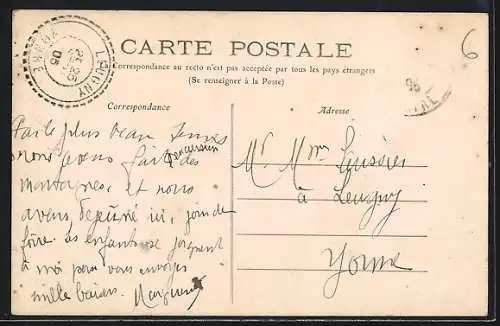 CARTE POSTALE
La Correspondance au recto n'est pas acceptée par tous les pays étrangers
(Se renseigner à la Poste)
Correspondance
Adresse
6
LEUGNY
YONNE
25
05
Par le plus beau temps
nous avons fait l'excursion des
montagnes, et nous
avons déjeuné ici,
foire. Les enfants se joignent
à moi pour vous envoyer
mille baisers.
Mr Mme
à Leugny
Yonne